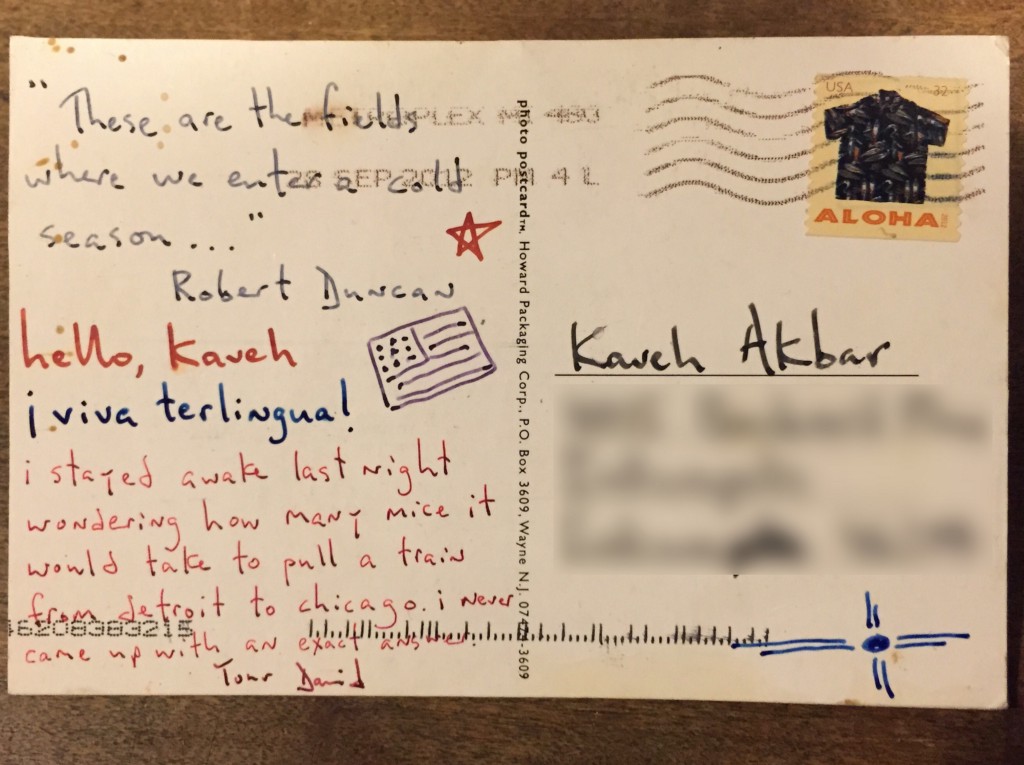 "These are the fields
where we enter a cold
season..."
Robert Duncan
hello, Kaveh
¡viva terlingua!
i stayed awake last night
wondering how many mice it
would take to pull a train
from detroit to chicago. i never
came up with an exact answer.
Your David
PLEX MI 480
28 SEP 2012 PM 4 L
46208383215
photo postcard™, Howard Packaging Corp., P.O. Box 3609, Wayne N.J. 07474-3609
USA 32
ALOHA
Kaveh Akbar